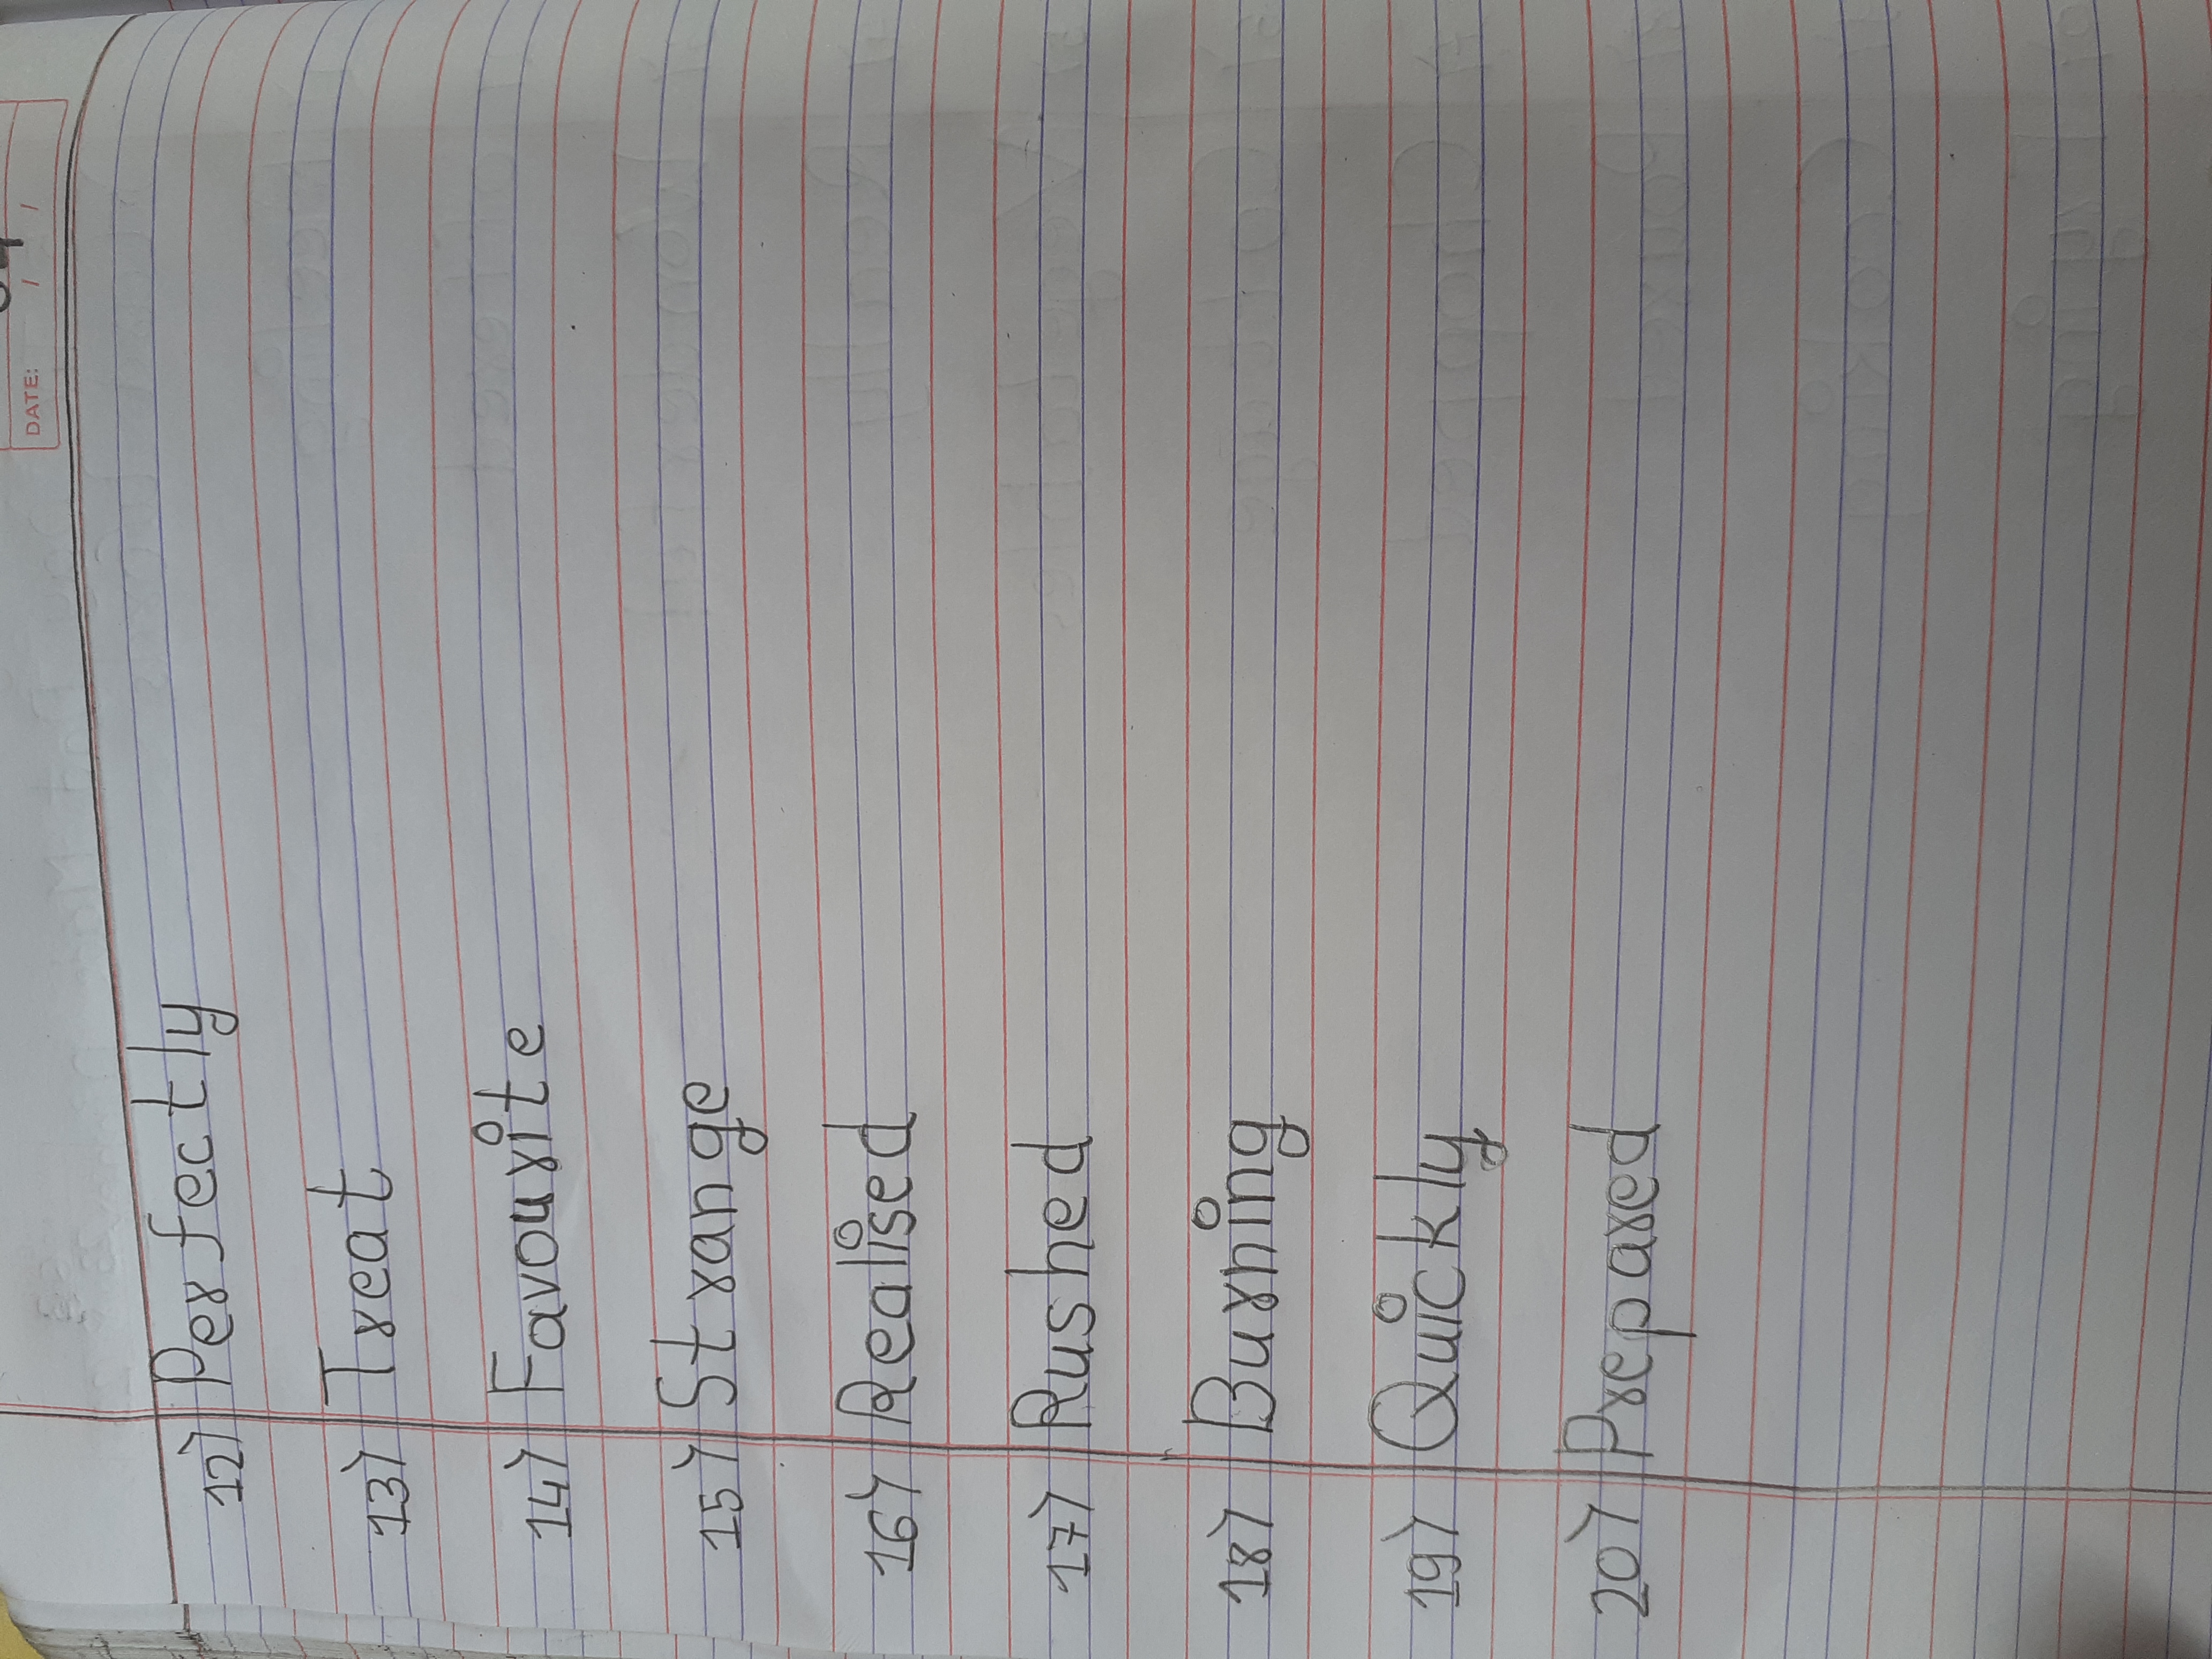 DATE: / /
12) Perfectly
13) Treat
14) Favourite
15) Strange
16) Realised
17) Rushed
18) Burning
19) Quickly
20) Prepared